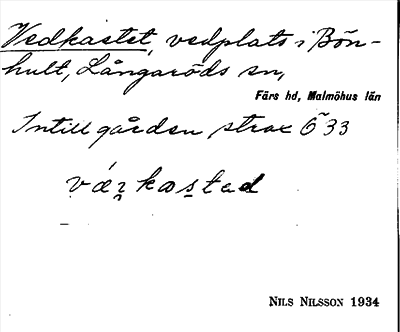 Vedkastet, vedplats i Bön-
hult, Långaröds sn,
Färs hd, Malmöhus län
Intill gården strax Ö 33
vǽ̣ʀ̣kas̱tad
Nils Nilsson 1934